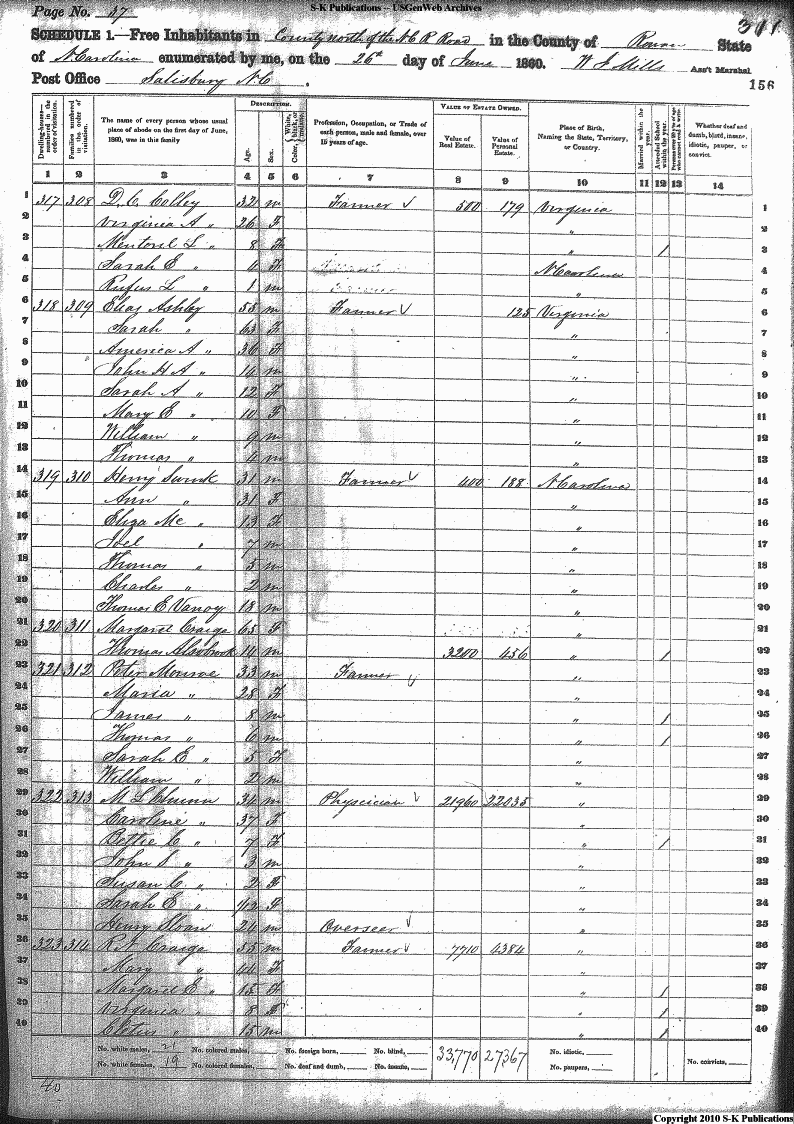 S-K Publications – USGenWeb Archives
Page No. 37
311
SCHEDULE 1.—Free Inhabitants in County north of the N C R Road in the County of Rowan State
of N Carolina enumerated by me, on the 26th day of June 1860. W J Mills Ass't Marshal
Post Office Salisbury N C.
156
Dwelling-houses—numbered in the order of visitation. Families numbered in the order of visitation. The name of every person whose usual place of abode on the first day of June, 1860, was in this family. DESCRIPTION. Age. Sex. Color, White, black, or mulatto. Profession, Occupation, or Trade of each person, male and female, over 15 years of age. VALUE OF ESTATE OWNED. Value of Real Estate. Value of Personal Estate. Place of Birth, Naming the State, Territory, or Country. Married within the year. Attended School within the year. Persons over 20 y'rs of age who cannot read & write. Whether deaf and dumb, blind, insane, idiotic, pauper, or convict.
1 2 3 4 5 6 7 8 9 10 11 12 13 14
1 317 308 D. C. Colley 32 m Farmer 500 179 Virginia 1
2 Virginia A " 26 F " 2
3 L " 8 F " / 3
4 Sarah E " 4 F N Carolina 4
5 Rufus L " 1 m " 5
6 318 309 Elias Ashby 55 m Farmer 125 Virginia 6
7 Sarah " 63 F " 7
8 America A " 36 F " 8
9 John H A " 14 m " 9
10 Sarah A " 12 F " 10
11 Mary E " 10 F " 11
12 William " 9 m " 12
13 Thomas " 4 m " 13
14 319 310 Henry 31 m Farmer 400 188 N Carolina 14
15 Ann " 31 F " 15
16 Eliza Mc " 13 F " 16
17 Joel " 7 m " 17
18 Thomas " 5 m " 18
19 Charles " 2 m " 19
20 Thomas E Vanoy 18 m " 20
21 320 311 Margaret Craige 65 F " 21
22 Thomas 10 m 3200 456 " / 22
23 321 312 Peter Monroe 33 m Farmer " 23
24 Maria " 28 F " 24
25 James " 8 m " / 25
26 Thomas " 6 m " / 26
27 Sarah E " 5 F " 27
28 William " 2 m " 28
29 322 313 M L Chunn 34 m Physcician 21960 22035 " 29
30 Caroline " 37 F " 30
31 Bettie C " 7 F " / 31
32 John S " 3 m " 32
33 Susan C " 2 F " 33
34 Sarah E " /12 F " 34
35 Henry Sloan 24 m Overseer " 35
36 323 314 R N Craige 55 m Farmer 7710 4384 " 36
37 Mary " 44 F " 37
38 Margaret E " 15 F " / 38
39 Virginia " 8 F " / 39
40 " 15 m " / 40
No. white males, 21 No. colored males, No. foreign born, No. blind, 33,770 27367 No. idiotic, No. convicts,
No. white females, 19 No. colored females, No. deaf and dumb, No. insane, No. paupers,
40
Copyright 2010 S-K Publications